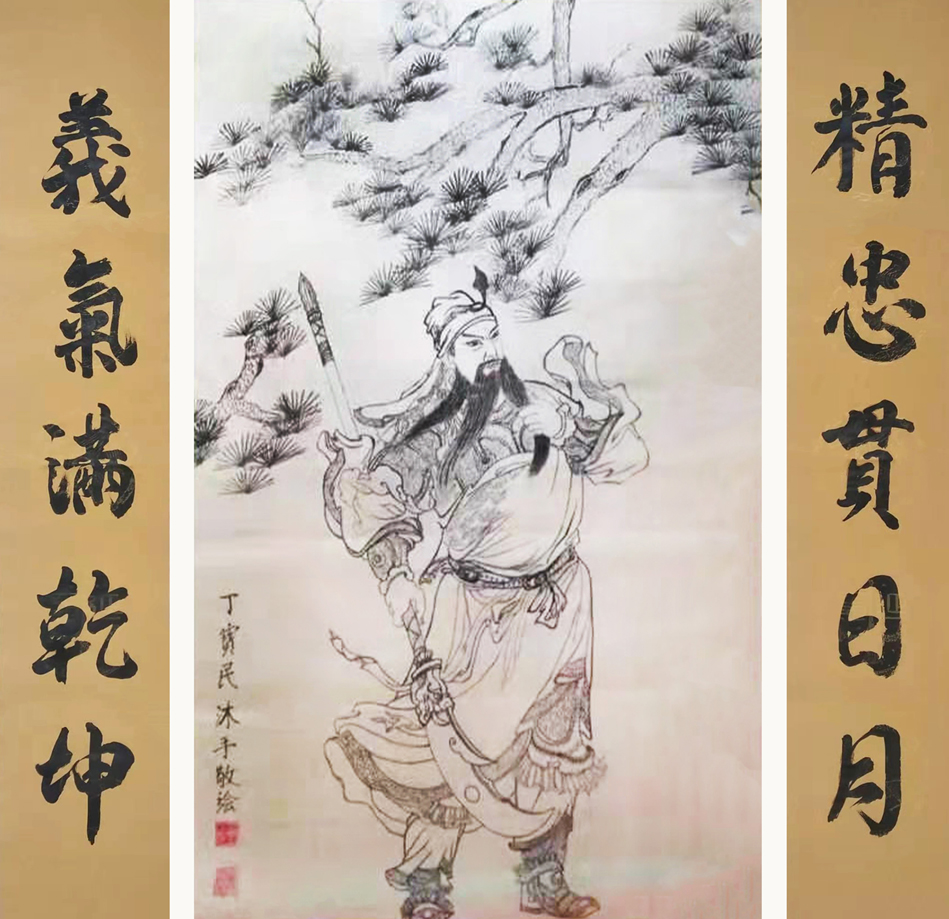 精忠貫日月
義氣滿乾坤
丁寶民沐手敬绘